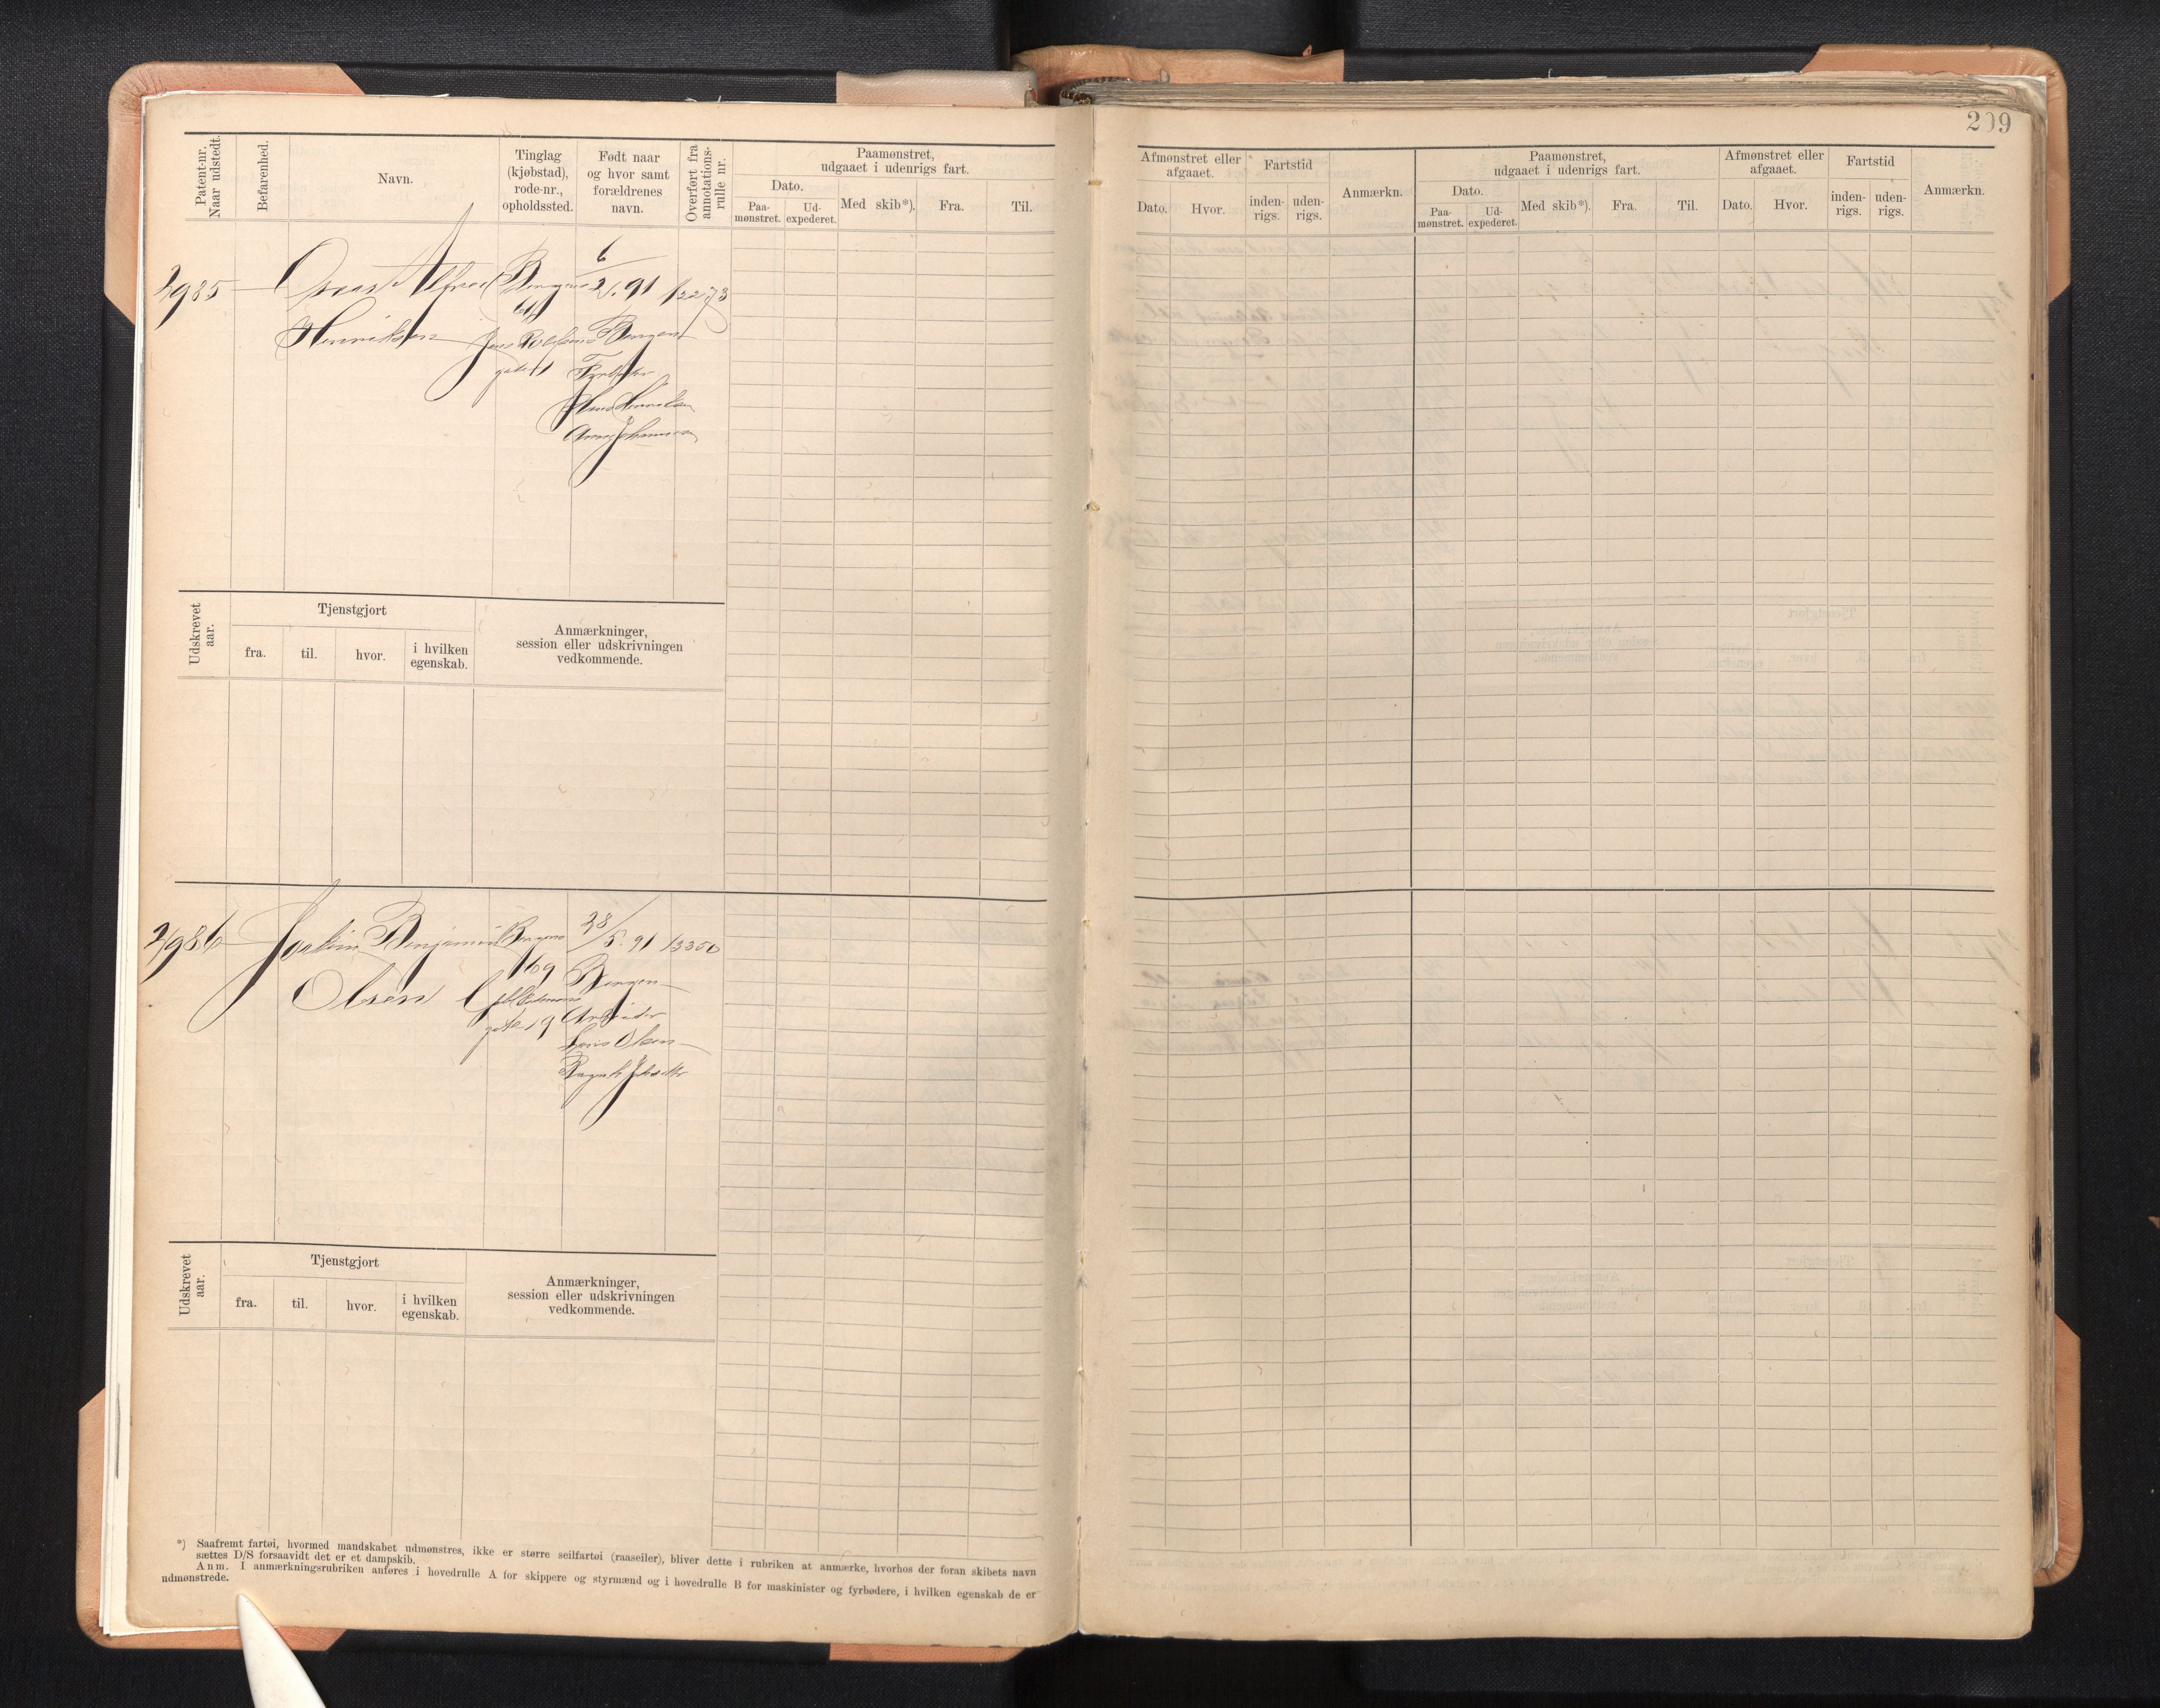 209
Patent-nr. Naar udstedt.
Befarenhed.
Navn.
Tinglag (kjøbstad), rode-nr., opholdssted.
Født naar og hvor samt forældrenes navn.
Overført fra annotations-rulle nr.
Paamønstret, udgaaet i udenrigs fart.
Dato.
Paa-mønstret.
Ud-expederet.
Med skib*).
Fra.
Til.
Afmønstret eller afgaaet.
Dato.
Hvor.
Fartstid
inden-rigs.
uden-rigs.
Anmærkn.
Paamønstret, udgaaet i udenrigs fart.
Dato.
Paa-mønstret.
Ud-expederet.
Med skib*).
Fra.
Til.
Afmønstret eller afgaaet.
Dato.
Hvor.
Fartstid
inden-rigs.
uden-rigs.
Anmærkn.
2985 Oscar Alfred Bergens 6/2. 91 12273
Henriksen
Bergen
gate
Fyrbøder
Hans Henriksen
Udskrevet aar.
Tjenstgjort
fra.
til.
hvor.
i hvilken egenskab.
Anmærkninger, session eller udskrivningen vedkommende.
2986 Joakim Benjamin Bergens 28/5. 91 13350
Olsen
169
Bergen
gate 19 Arbeider
Olsen
Udskrevet aar.
Tjenstgjort
fra.
til.
hvor.
i hvilken egenskab.
Anmærkninger, session eller udskrivningen vedkommende.
*) Saafremt fartøi, hvormed mandskabet udmønstres, ikke er større seilfartøi (raaseiler), bliver dette i rubriken at anmærke, hvorhos der foran skibets navn
sættes D/S forsaavidt det er et dampskib.
Anm. I anmærkningsrubriken anføres i hovedrulle A for skippere og styrmænd og i hovedrulle B for maskinister og fyrbødere, i hvilken egenskab de er
udmønstrede.